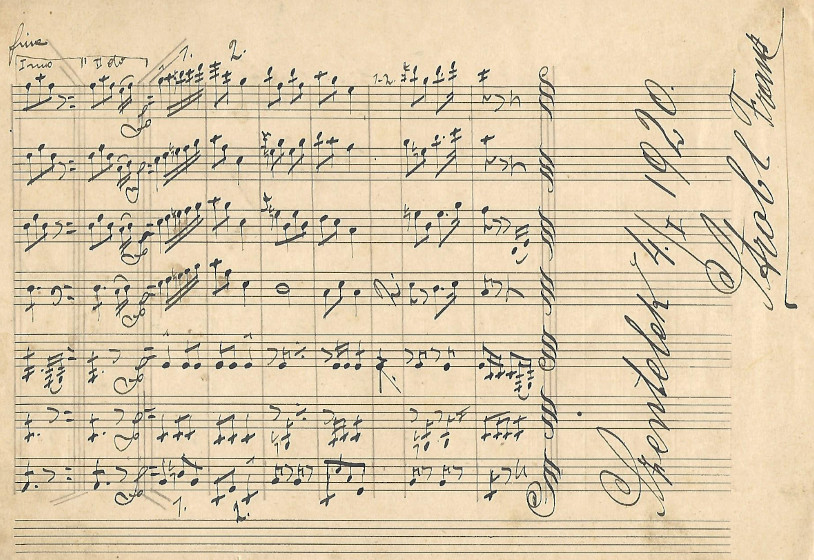 fine
Imo IIdo 1. 2.
1-2.
1. 2.
Szentelek 4./I 1920.
Strobl Franz